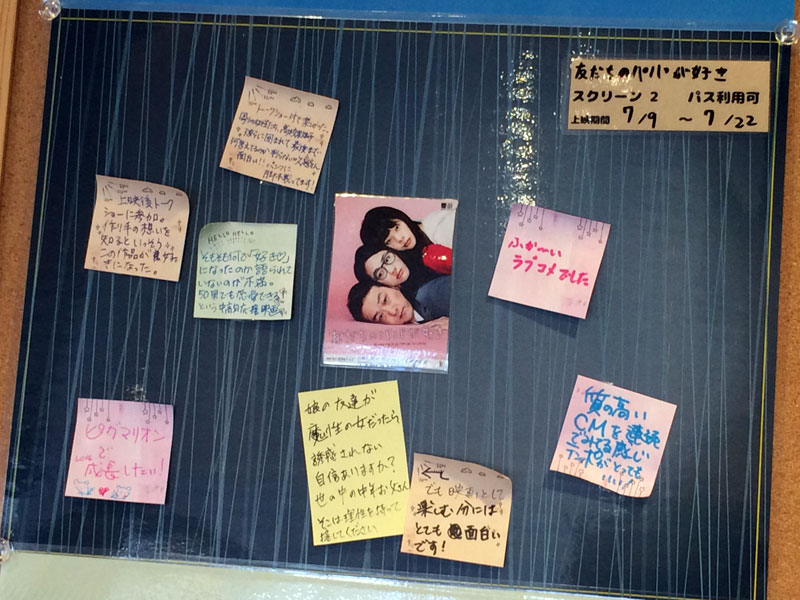 友だちのパパが好き
スクリーン 2 パス利用可
上映期間 7/9 ～ 7/22
トークショー付で楽しかった。
面白い!!
上映後トーク
ショーに参加。
作り手の想いを
知るといっそう
この作品が
きになった。
HELLO HELLO
そもそも何で「好き♡」
になったのか語られて
いないのが不満。
50男でも恋愛できる
という
ふか〜い
ラブコメでした
ピグマリオン
で
成長したい!
娘の友達が
魔性の女だったら
誘惑されない
自信ありますか?
世の中の中年お父さん
そこは理性を持って
接してください
でも映画として
楽しむ分には
とても面白い
です!
質の高い
CMを連続
でみてる感じ
テンポがとっても
いい!